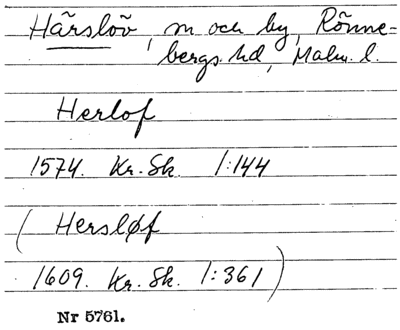 Härslöv, sn och by, Rönne-
bergs hd, Malm. l.
Herlof
1574. Kr. Sk. 1:144
(Hersløf
1609. Kr. Sk. 1:361)
Nr 5761.